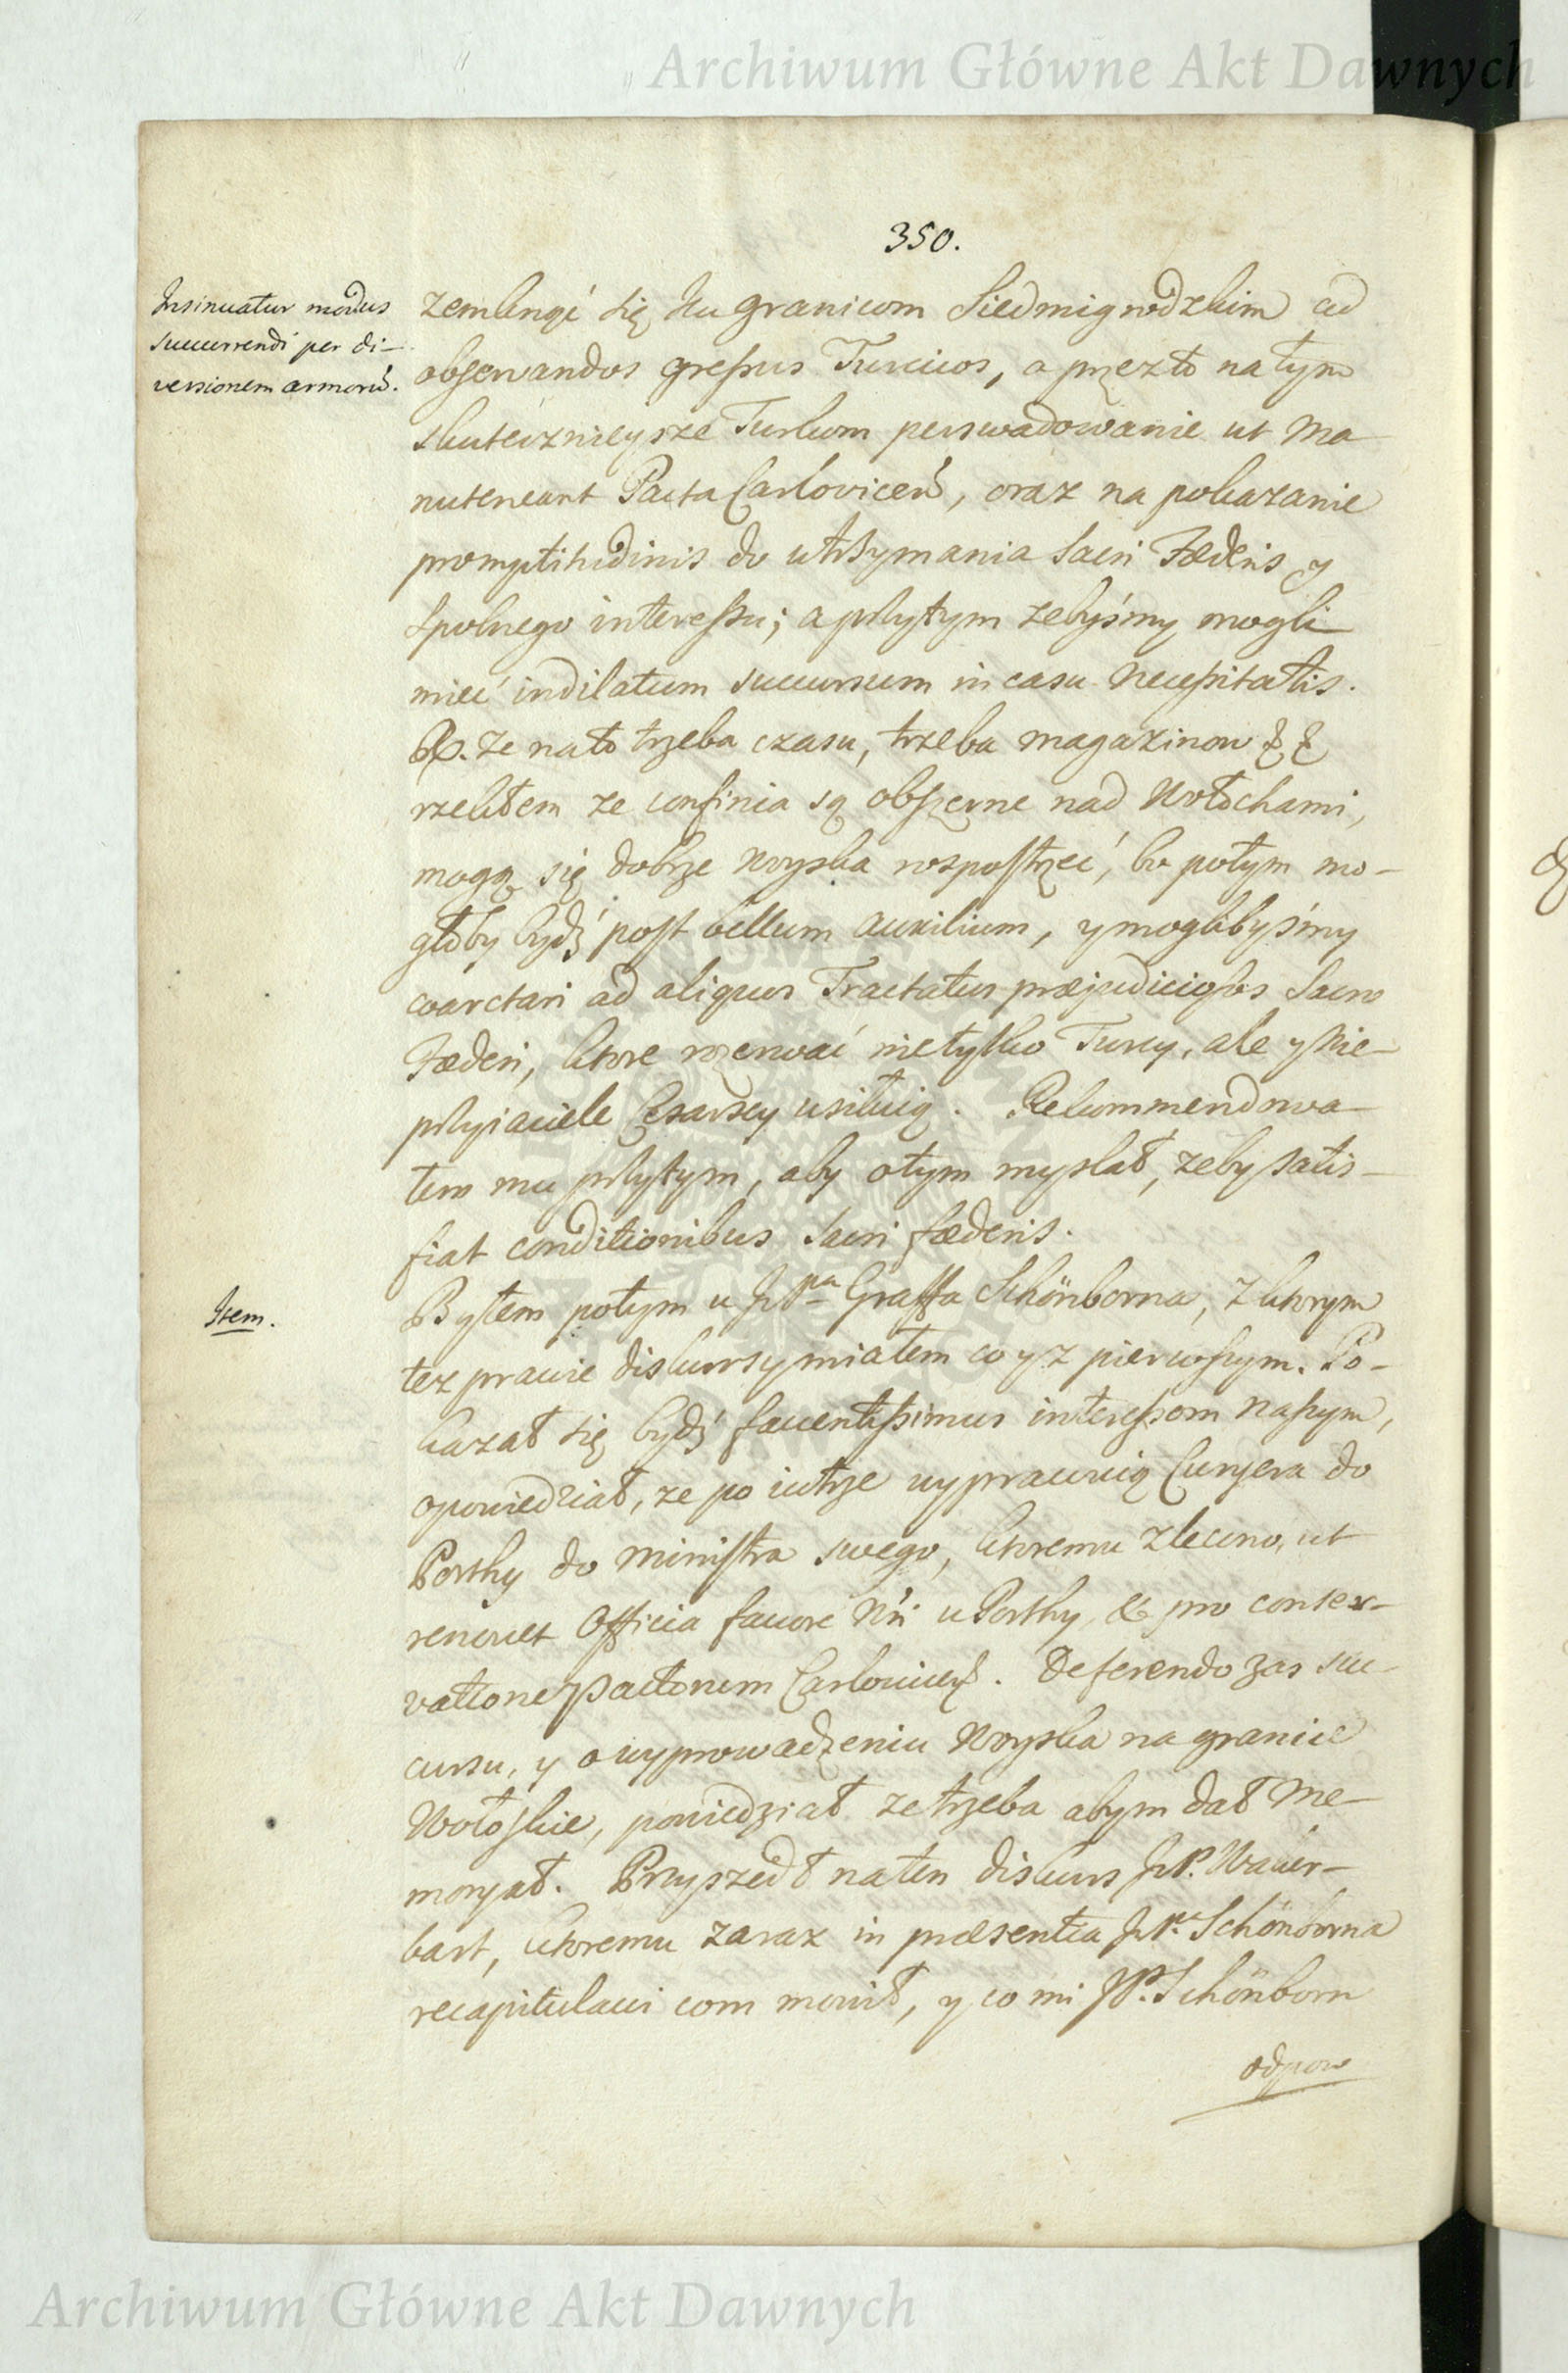 Archiwum Główne Akt Dawnych
350.
Insinuatur modus
succurrendi per di-
versionem armorũ.
zemknąć się ku granicom Siedmigrodzkim ad
observandos gressus Turcicos, a przezto na tym
skutecznieysze Turkom perswadowanie ut ma
nuteneant Pacta Carlovicen̄, oraz na pokazanie
promptitudinis do utrzymania Sacri Fœderis y
spolnego interessu; a przytym zebyśmy mogli
mieć indilatum succursum in casu necessitatis.
Rx. Ze nato trzeba czasu, trzeba magazinow & &
rzekłem ze confinia są obszerne nad Wołochami,
mogą się dobrze woyska rospostrzeć, bo potym mo-
głoby bydź post bellum auxilium, y moglibyśmy
coarctari ad aliquos Tractatus præjudiciosos Sacro
Fœderi, ktore rozerwać nietylko Turcy, ale y nie-
przyiaciele Cesarscy usiłuią. Rekommendowa-
łem mu przytym, aby otym myslał, zeby satis-
fiat conditionibus Sacri fœderis.
Item.
Byłem potym u JPpa Graffa Schönborna, z ktorym
tez prawie diskursy miałem co y z pierwszym. Po-
kazał się bydź faventissimus interessom naszym,
opowiedział, ze po iutrze wyprawuią Curyera do
Porthy do ministra swego, ktoremu zlecono, ut
renovet Officia favore Nr̃i u Porthy, & pro conser-
vatione Pactorum Carlovicen̄. Deferendo zas suc-
cursu, y o wyprowadzeniu Woyska na granice
Wołoskie, powiedział ze trzeba abym dał me-
moryał. Przyszedł na ten diskurs JP. Wacker-
bart, ktoremu zaraz in præsentia JPa Schönborna
recapitulavi com mowił, y co mi JP. Schönborn
odpow
Archiwum Główne Akt Dawnych